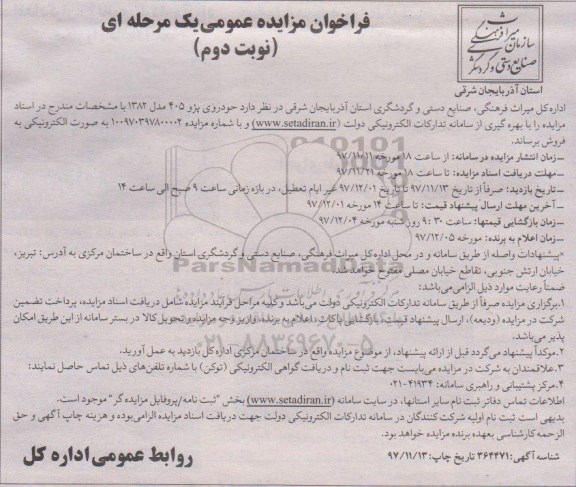 فراخوان مزایده عمومی یک مرحله ای
(نوبت دوم)
سازمان میراث فرهنگی
صنایع دستی و گردشگری
استان آذربایجان شرقی
اداره کل میراث فرهنگی، صنایع دستی و گردشگری استان آذربایجان شرقی در نظر دارد خودروی پژو ۴۰۵ مدل ۱۳۸۲ با مشخصات مندرج در اسناد
مزایده را با بهره گیری از سامانه تدارکات الکترونیکی دولت (www.setadiran.ir) و با شماره مزایده ۱۰۰۹۷۰۳۹۷۸۰۰۰۰۲ به صورت الکترونیکی به
فروش برساند.
ـ زمان انتشار مزایده در سامانه: از ساعت ۱۸ مورخه
ـ مهلت دریافت اسناد مزایده: تا ساعت ۱۸ مورخه ۹۷/۱۱/۲۱
ـ تاریخ بازدید: صرفاً از تاریخ ۹۷/۱۱/۱۳ تا تاریخ ۹۷/۱۲/۰۱ غیر ایام تعطیل، در بازه زمانی ساعت ۹ صبح الی ساعت ۱۴
ـ آخرین مهلت ارسال پیشنهاد قیمت: تا ساعت ۱۴ مورخه ۹۷/۱۲/۰۱
ـ زمان بازگشایی قیمتها: ساعت ۹:۳۰ روز شنبه مورخه ۹۷/۱۲/۰۴
ـ زمان اعلام به برنده: مورخه ۹۷/۱۲/۰۵
*پیشنهادات واصله از طریق سامانه و در محل اداره کل میراث فرهنگی، صنایع دستی و گردشگری استان واقع در ساختمان مرکزی به آدرس: تبریز،
خیابان ارتش جنوبی، تقاطع خیابان مصلی مفتوح خواهد شد.
ضمناً رعایت موارد ذیل الزامی می‌باشد:
۱.برگزاری مزایده صرفاً از طریق سامانه تدارکات الکترونیکی دولت می‌باشد و کلیه مراحل فرآیند مزایده شامل دریافت اسناد مزایده، پرداخت تضمین
شرکت در مزایده (ودیعه)، ارسال پیشنهاد قیمت، بازگشایی پاکات، اعلام به برنده، واریز وجه مزایده و تحویل کالا در بستر سامانه از این طریق امکان
پذیر می‌باشد.
۲.موکداً پیشنهاد می‌گردد قبل از ارائه پیشنهاد، از موضوع مزایده واقع در ساختمان مرکزی اداره کل بازدید به عمل آورید.
۳.علاقمندان به شرکت در مزایده می‌بایست جهت ثبت نام و دریافت گواهی الکترونیکی (توکن) با شماره تلفن‌های ذیل تماس حاصل نمایند:
۴.مرکز پشتیبانی و راهبری سامانه: ۴۱۹۳۴-۰۲۱
اطلاعات تماس دفاتر ثبت نام سایر استانها، در سایت سامانه (www.setadiran.ir) بخش "ثبت نامه/پروفایل مزایده گر" موجود است.
بدیهی است ثبت نام اولیه شرکت کنندگان در سامانه تدارکات الکترونیکی دولت جهت دریافت اسناد مزایده الزامی بوده و هزینه چاپ آگهی و حق
الزحمه کارشناسی بعهده برنده مزایده خواهد بود.
شناسه آگهی: ۳۶۴۴۷۱ تاریخ چاپ: ۹۷/۱۱/۱۳
روابط عمومی اداره کل
ParsNamadData
۰۲۱-۸۸۳۴۹۶۷۰-۵